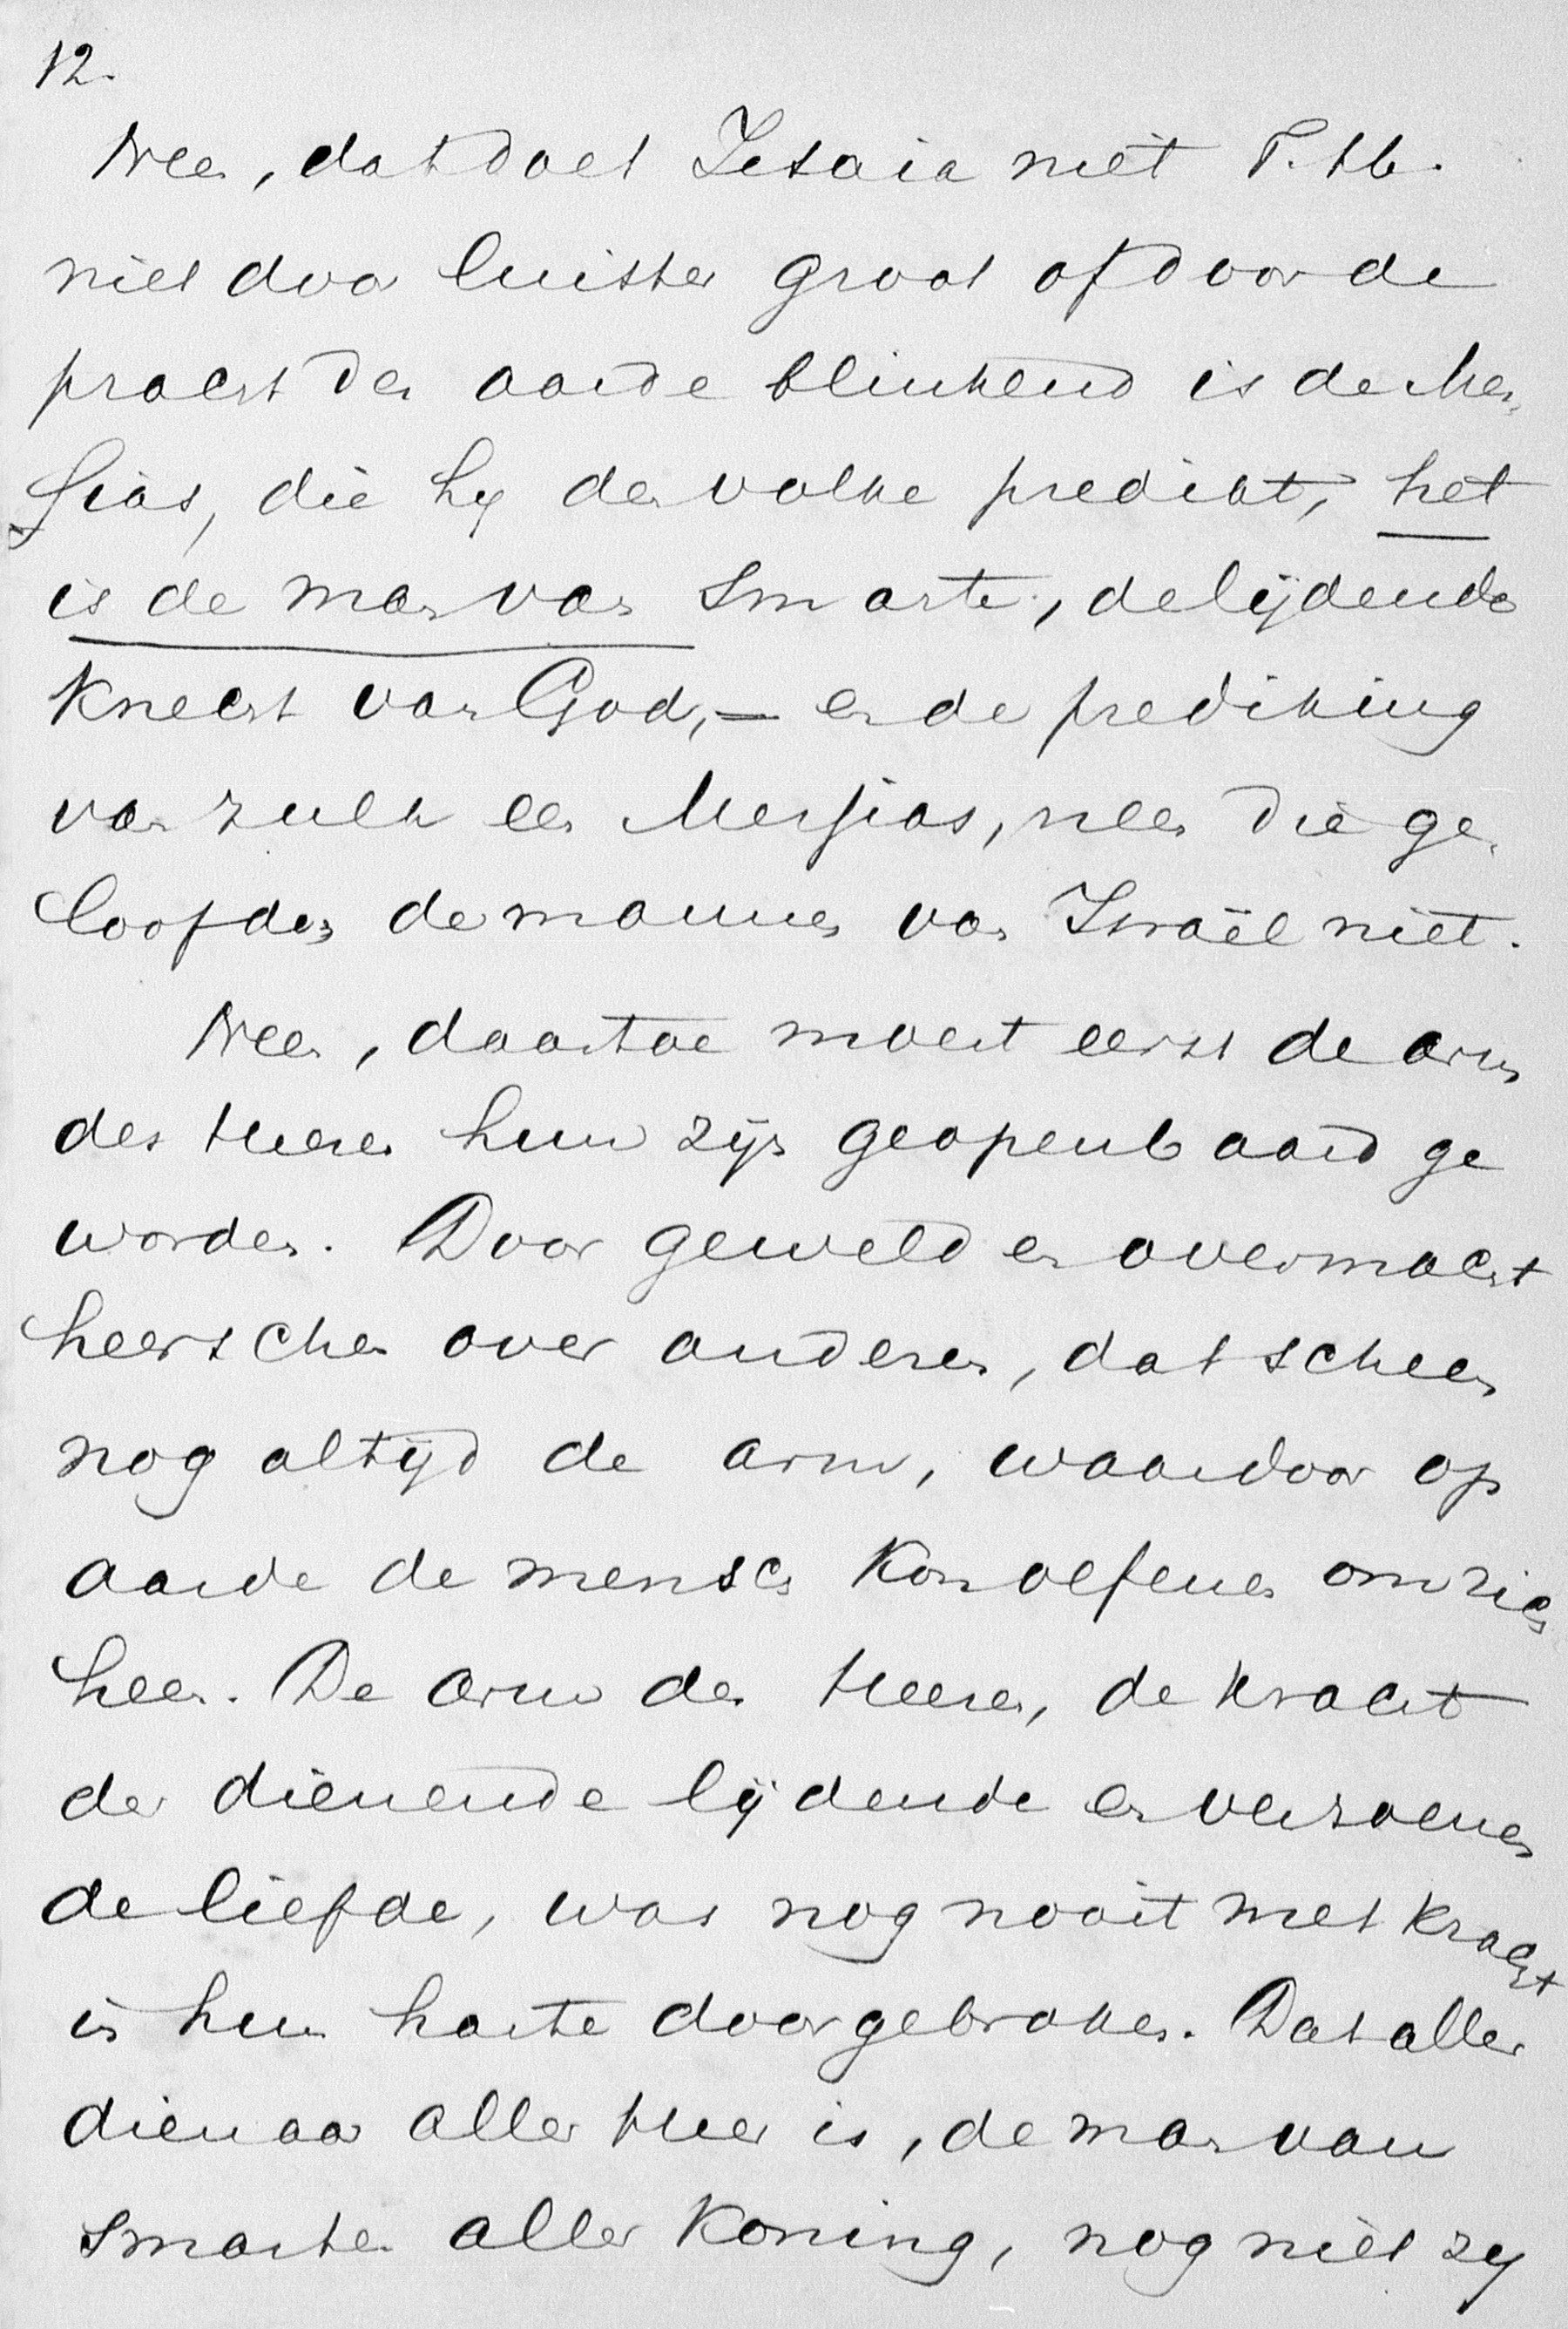 12.
Neen, dat doet Jesaia niet T. H.
niet door luister groot of door de
pracht der aarde blinkend is de Mes-
sias, die hy den volke predikt, het
is de man van smarte, de lijdende
Knecht van God, — en de prediking
van zulk een Messias, neen die ge-
loofden de mannen van Israël niet.
Neen, daartoe moest eerst de arm
des Heeren hun zijn geopenbaard ge
worden. Door geweld en overmacht
heerschen over anderen, dat scheen
nog altijd de arm, waardoor op
aarde de mensch kon oefenen om zich
heen. De arm des Heeren, de kracht
der dienende lijdende en verzoenen
de liefde, was nog nooit met kracht
in hun harte doorgebroken. Dat aller
dienaar aller Heer is, de man van
smarten aller Koning, nog niet zy